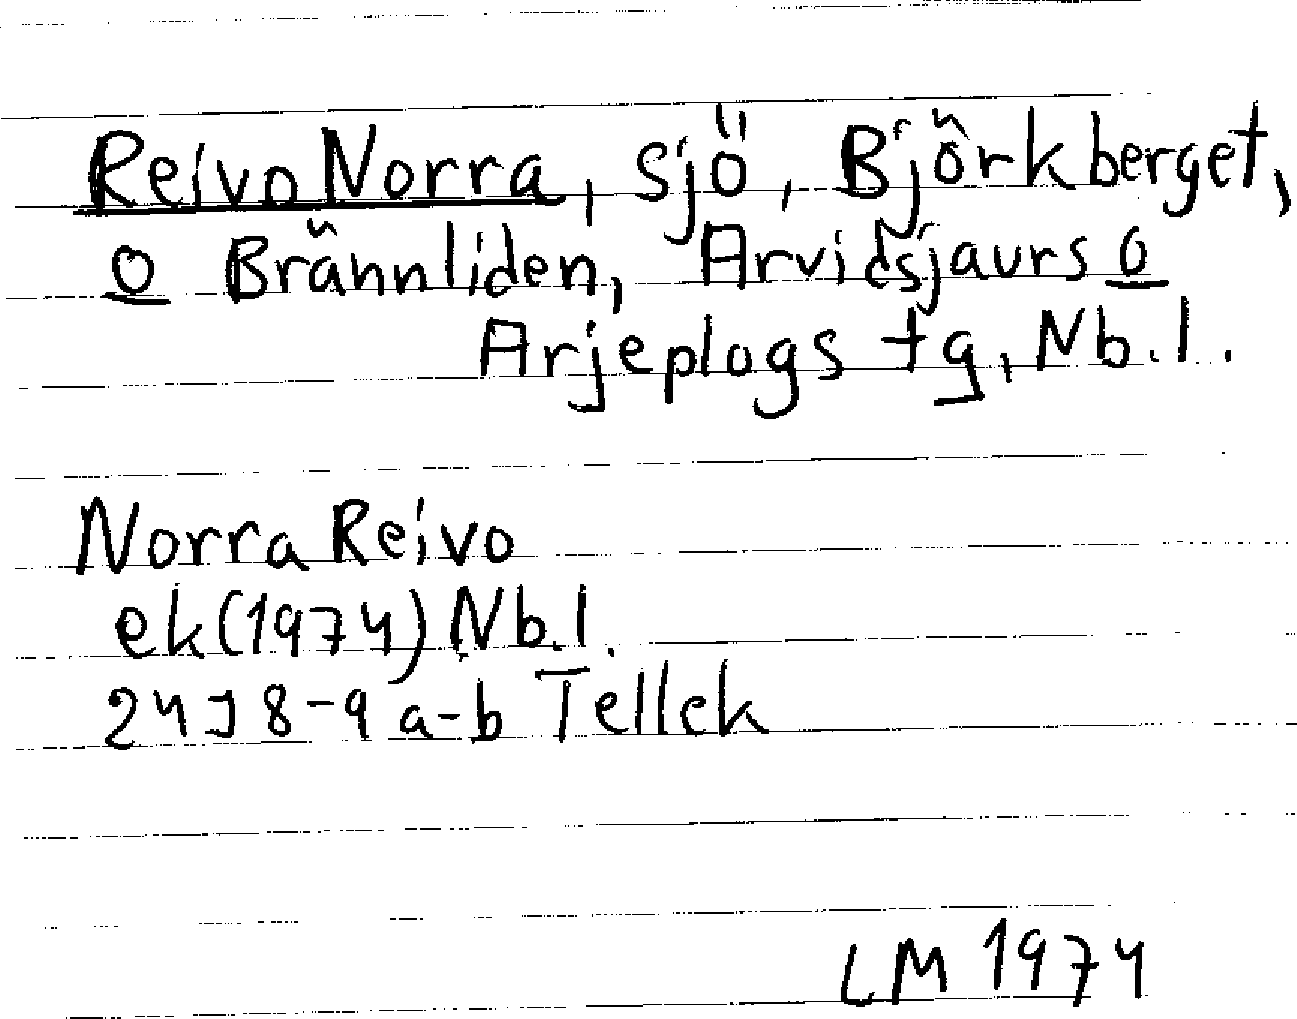 Reivo Norra, sjö, Björkberget,
o Brännliden, Arvidsjaurs o
Arjeplogs tg, Nb.l.
Norra Reivo
ek (1974) Nb.l.
24J 8-9 a-b Tellek
LM 1974